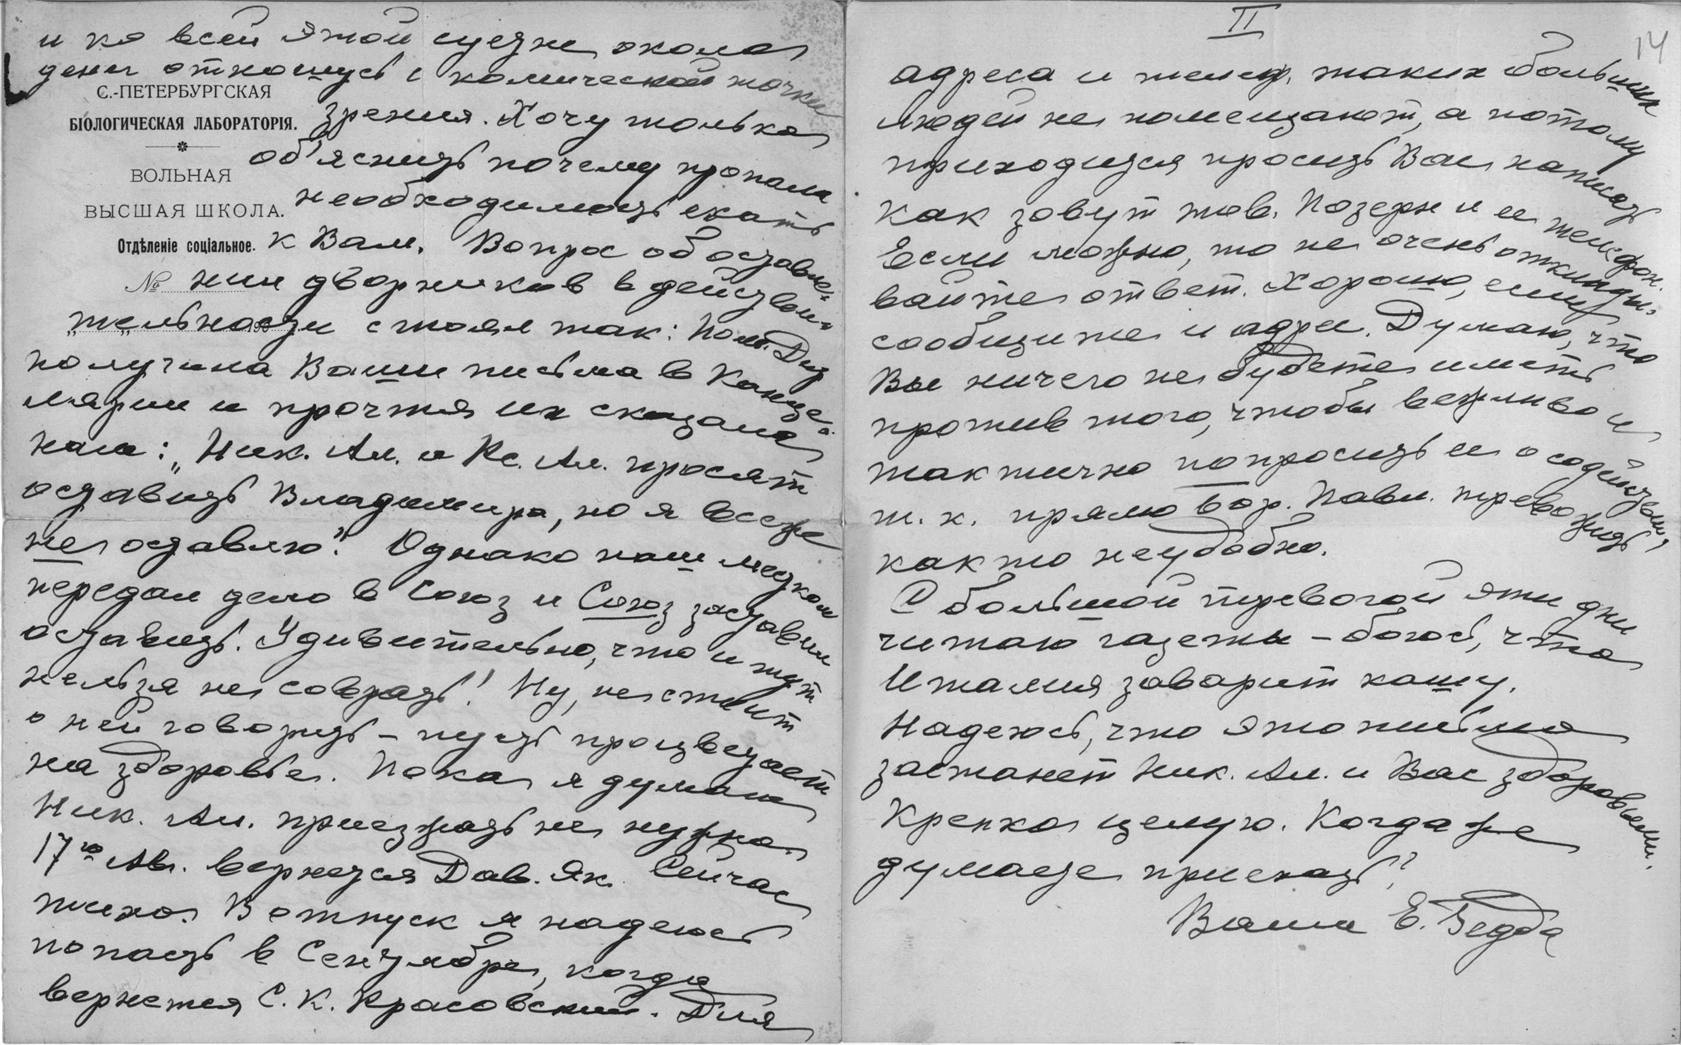 и ко всей этой суетне около
дени отношусь с комической точки
С.-ПЕТЕРБУРГСКАЯ
БІОЛОГИЧЕСКАЯ ЛАБОРАТОРІЯ.
зрения. Хочу только
об'яснить почему пропала
ВОЛЬНАЯ
необходимость ехать
ВЫСШАЯ ШКОЛА.
Отдѣленіе соціальное.
к Вам. Вопрос об оставле-
№
нии дворников в действи-
тельности стоял так: Полт. Диз
получила Ваши письма в Канце-
лярии и прочтя их сказала
нам: „Ник. Ал. и Кс. Ал. просят
оставить Владимира, но я все же
не оставлю". Однако наш местком
передал дело в Союз и Союз заставил
оставить. Удивительно, что и тут
нельзя не соврать! Ну, не стоит
о ней говорить – пусть процветает
на здоровье. Пока я думаю
Ник. Ал. приезжать не нужно.
17го Авг. вернется Дав. Як. Сейчас
тихо. В отпуск я надеюсь
попасть в Сентябре, когда
вернется С. К. Красовский. Для
II
14
адреса и телеф. таких больших
людей не помещают, а потому
приходится просить Вас написать
как зовут тов. Позерн и ее телефон.
Если можно, то не очень откиды-
вайте ответ. Хорошо, если
сообщите и адрес. Думаю, что
Вы ничего не будете иметь
против того, чтобы вежливо и
тактично попросить ее о содействии,
т. к. прямо Бор. Павл. тревожить
как то неудобно.
С большой тревогой эти дни
читаю газеты – боюсь, что
Италия заварит кашу.
Надеюсь, что это письмо
застанет Ник. Ал. и Вас здоровыми.
Крепко целую. Когда же
думаете приехать?
Ваша Е.